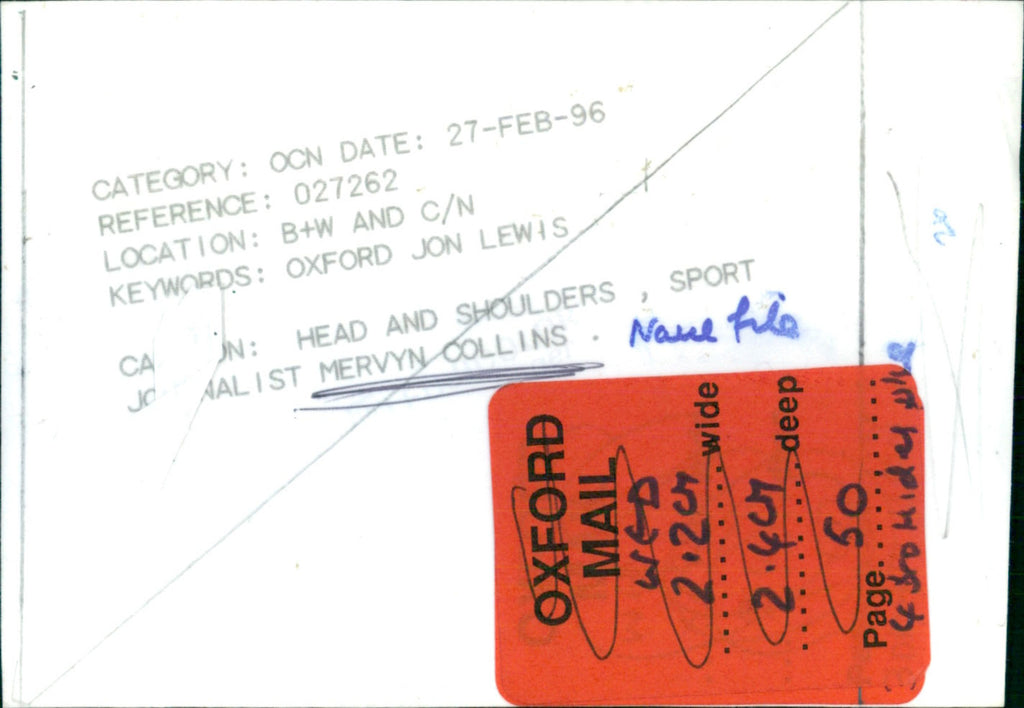 CATEGORY: OCN DATE: 27-FEB-96
REFERENCE: 027262
LOCATION: B+W AND C/N
KEYWORDS: OXFORD JON LEWIS
CA N: HEAD AND SHOULDERS , SPORT
JO NALIST MERVYN COLLINS .
Name file
OXFORD
MAIL
WED
2.2cm wide
2.4cm deep
50
Page